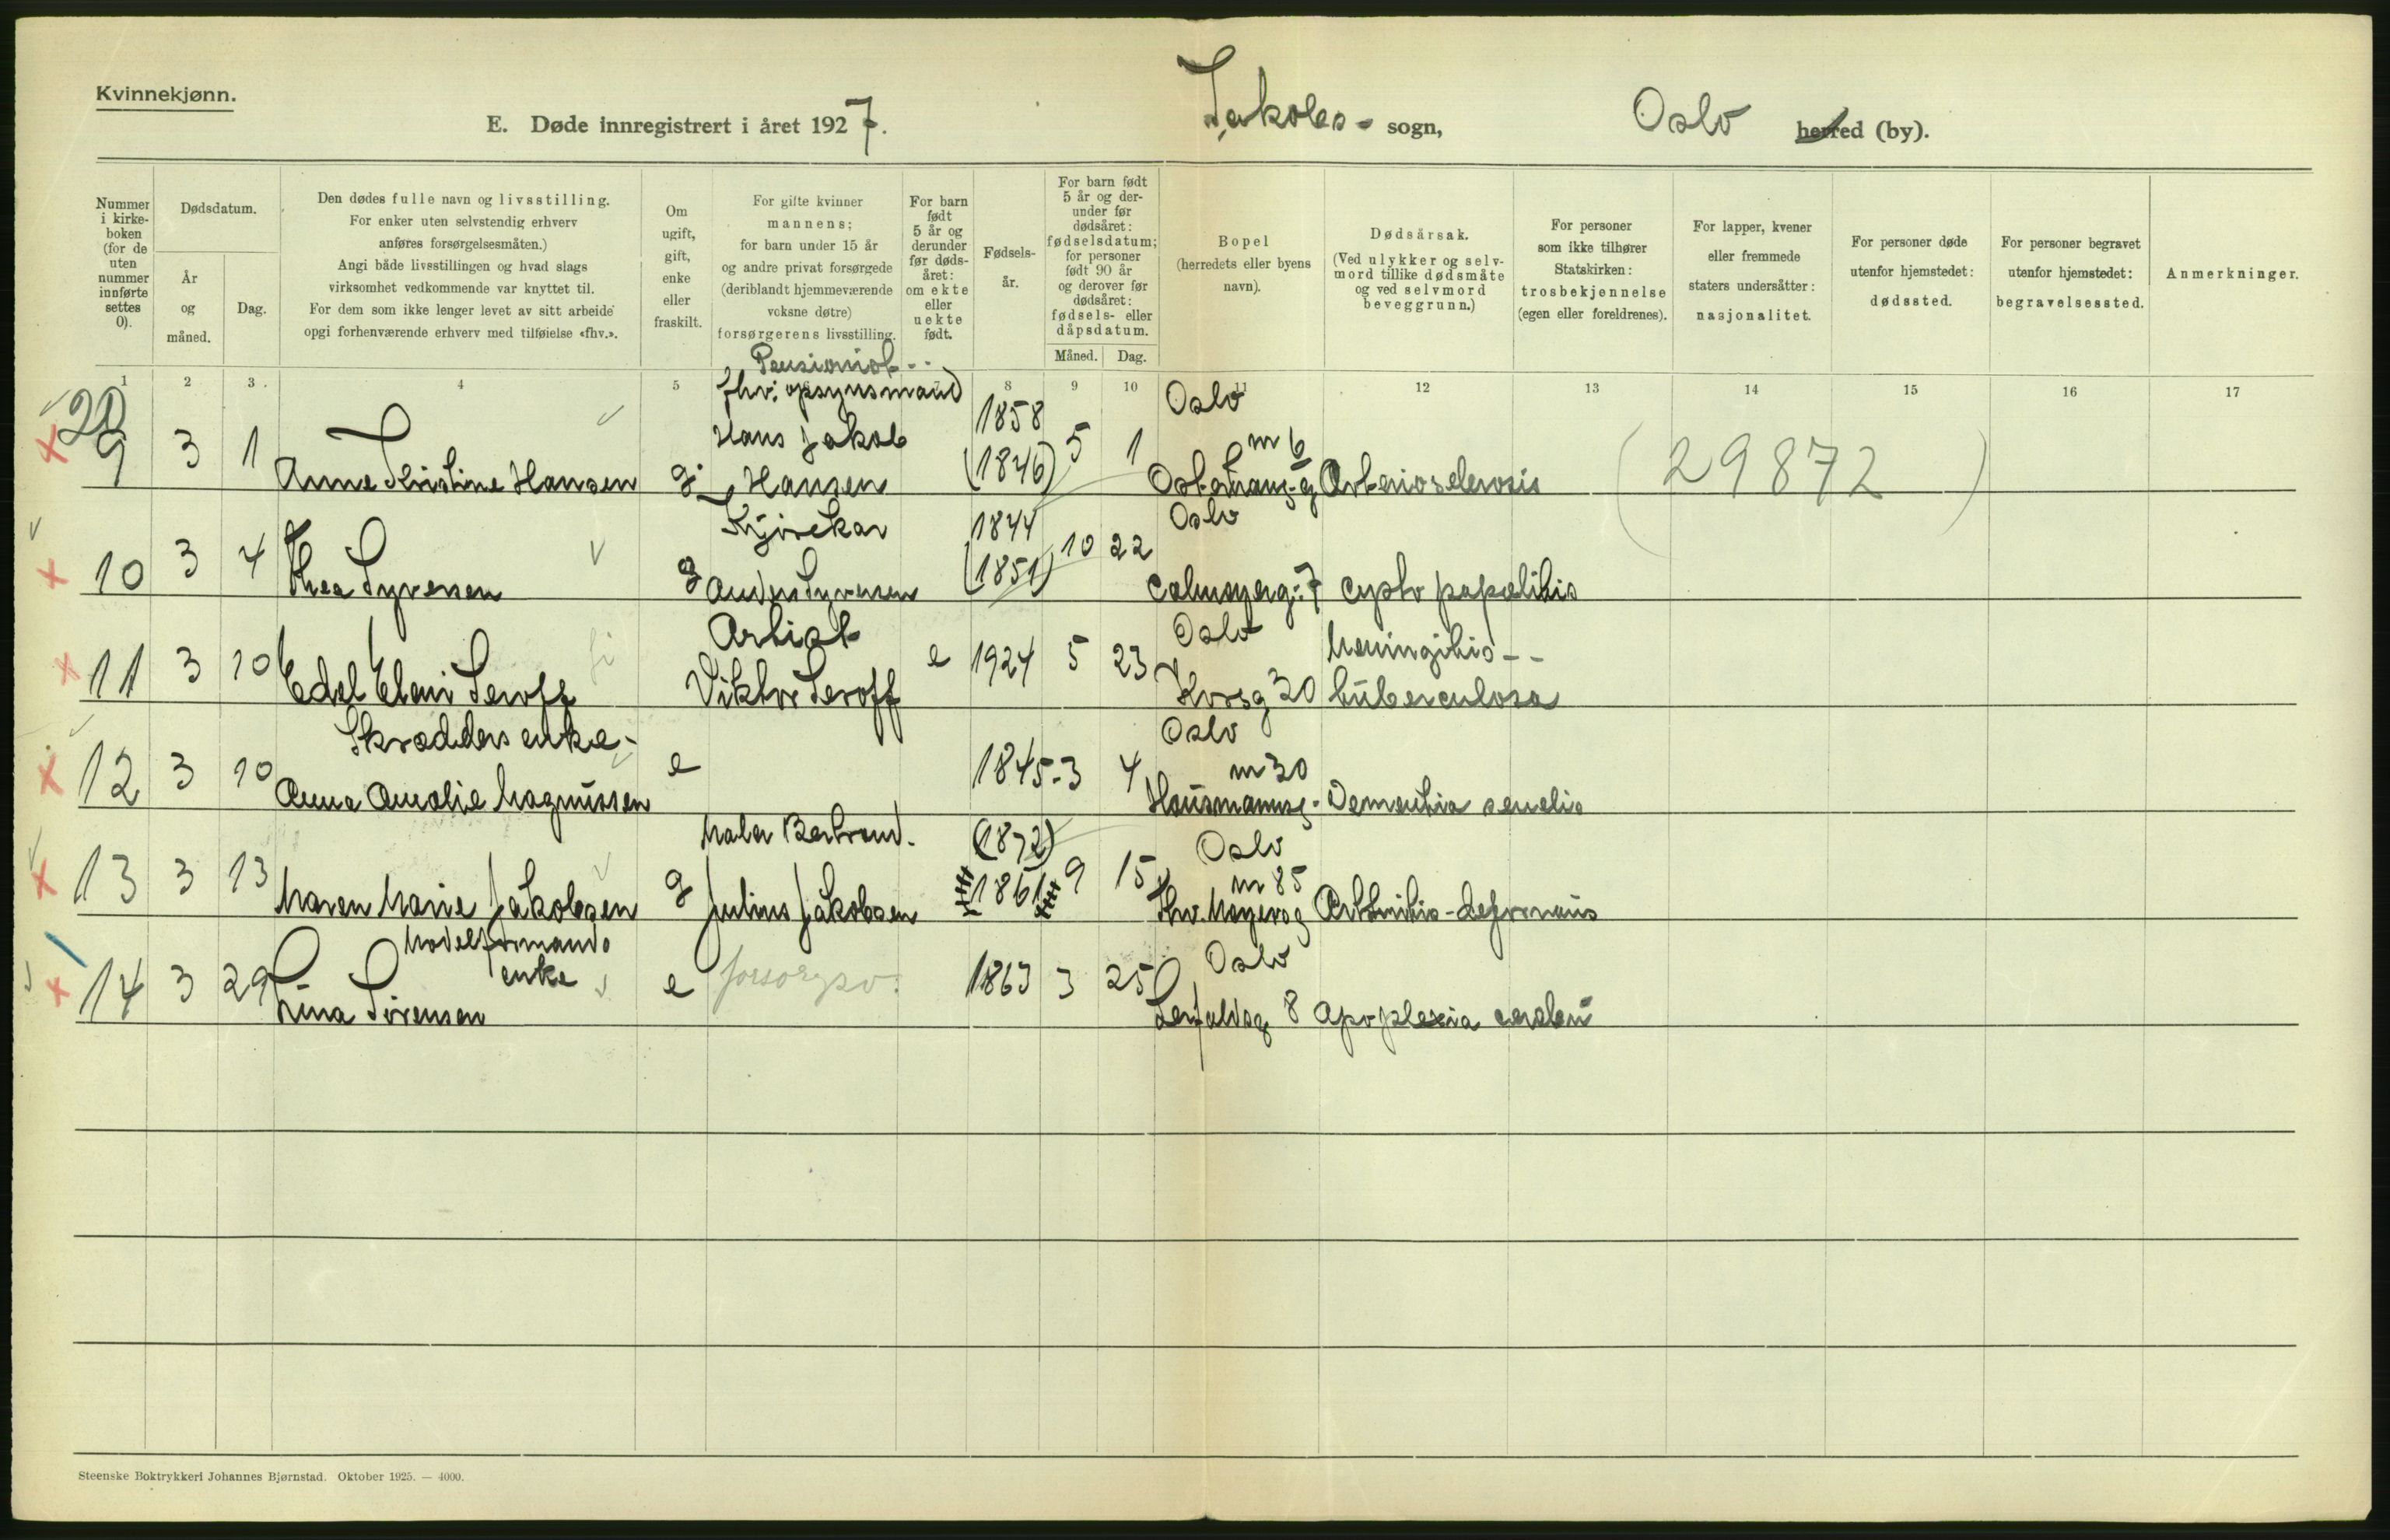 Kvinnekjønn.
E. Døde innregistrert i året 1927.
Jakobs- sogn,
Oslo herred (by).
Nummer i kirke- boken (for de uten nummer innførte settes 0).
Dødsdatum.
År og måned.
Dag.
Den dødes fulle navn og livsstilling.
For enker uten selvstendig erhverv
anføres forsørgelsesmåten.)
Angi både livsstillingen og hvad slags
virksomhet vedkommende var knyttet til.
For dem som ikke lenger levet av sitt arbeide
opgi forhenværende erhverv med tilføielse «fhv.».
Om ugift, gift, enke eller fraskilt.
For gifte kvinner
mannens;
for barn under 15 år
og andre privat forsørgede
(deriblandt hjemmeværende
voksne døtre)
forsørgerens livsstilling.
For barn født 5 år og derunder før døds- året: om ekte eller uekte født.
Fødsels- år.
For barn født 5 år og der- under før dødsåret: fødselsdatum; for personer født 90 år og derover før dødsåret: fødsels- eller dåpsdatum.
Måned. Dag.
Bopel
(herredets eller byens
navn).
Dødsårsak.
(Ved ulykker og selv-
mord tillike dødsmåte
og ved selvmord
beveggrunn.)
For personer
som ikke tilhører
Statskirken:
trosbekjennelse
(egen eller foreldrenes).
For lapper, kvener
eller fremmede
staters undersåtter:
nasjonalitet.
For personer døde
utenfor hjemstedet:
dødssted.
For personer begravet
utenfor hjemstedet:
begravelsessted.
Anmerkninger.
1 2 3. 4 5 8 9 10 11 12 13 14 15 16 17
20
Pensionist
fhv: opsynsmand 1858 Oslo
Hans Jakob nr 6
9 3 1 Anne Kristine Hansen g. Hansen (1846) 5 1 Arteriosclerosis (29872)
Kjørekar 1844 Oslo
10 3 4 Thea Syversen g Anders Syversen (1851) 10 22 Calmeyerg: 7 Cysto
Artist Oslo Meningitis--
11 3 10 Edel Seroff Viktor Seroff e 1924 5 23 Korsg 30 tuberculosa
Skrædders enke- Oslo
nr 30
12 3 10 Anna Amalie Magnussen e 1845-3 4 Hausmannsg- Dementia senelis
Maler Bertrand. (1872) Oslo
nr 85
13 3 13 Maren Marie Jakobsen g Julius Jakobsen 1861 9 15 Thv. Meyersg Arthritis-deformans
enke forsørges. Oslo
14 3 29 Lina Sørensen e 1863 3 25 8 Apoplexia cerebri
Steenske Boktrykkeri Johannes Bjørnstad. Oktober 1925. — 4000.